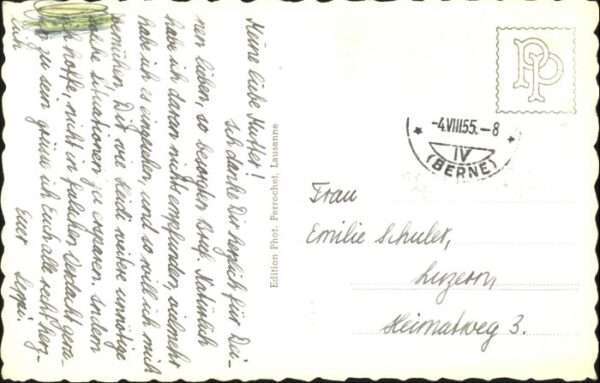 Meine liebe Mutter!
Ich danke Dir herzlich für Dei-
nen lieben, so besorgten Brief. Natürlich
habe ich davon nichts empfunden, vielmehr
habe ich es eingesehen, und so will ich mich
bemühen, Dir wie Heidi weitere unnötige
Situationen zu ersparen. Indem
ich hoffe, nicht in falschen Verdacht gera-
zu sein grüsse ich Euch alle recht herz-
lich
Euer Seppi.
Edition Phot. Perrochet, Lausanne
PP
-4.VIII.55.-8
IV
(BERNE)
Frau
Emilie Schuler,
Luzern
Heimatweg 3.